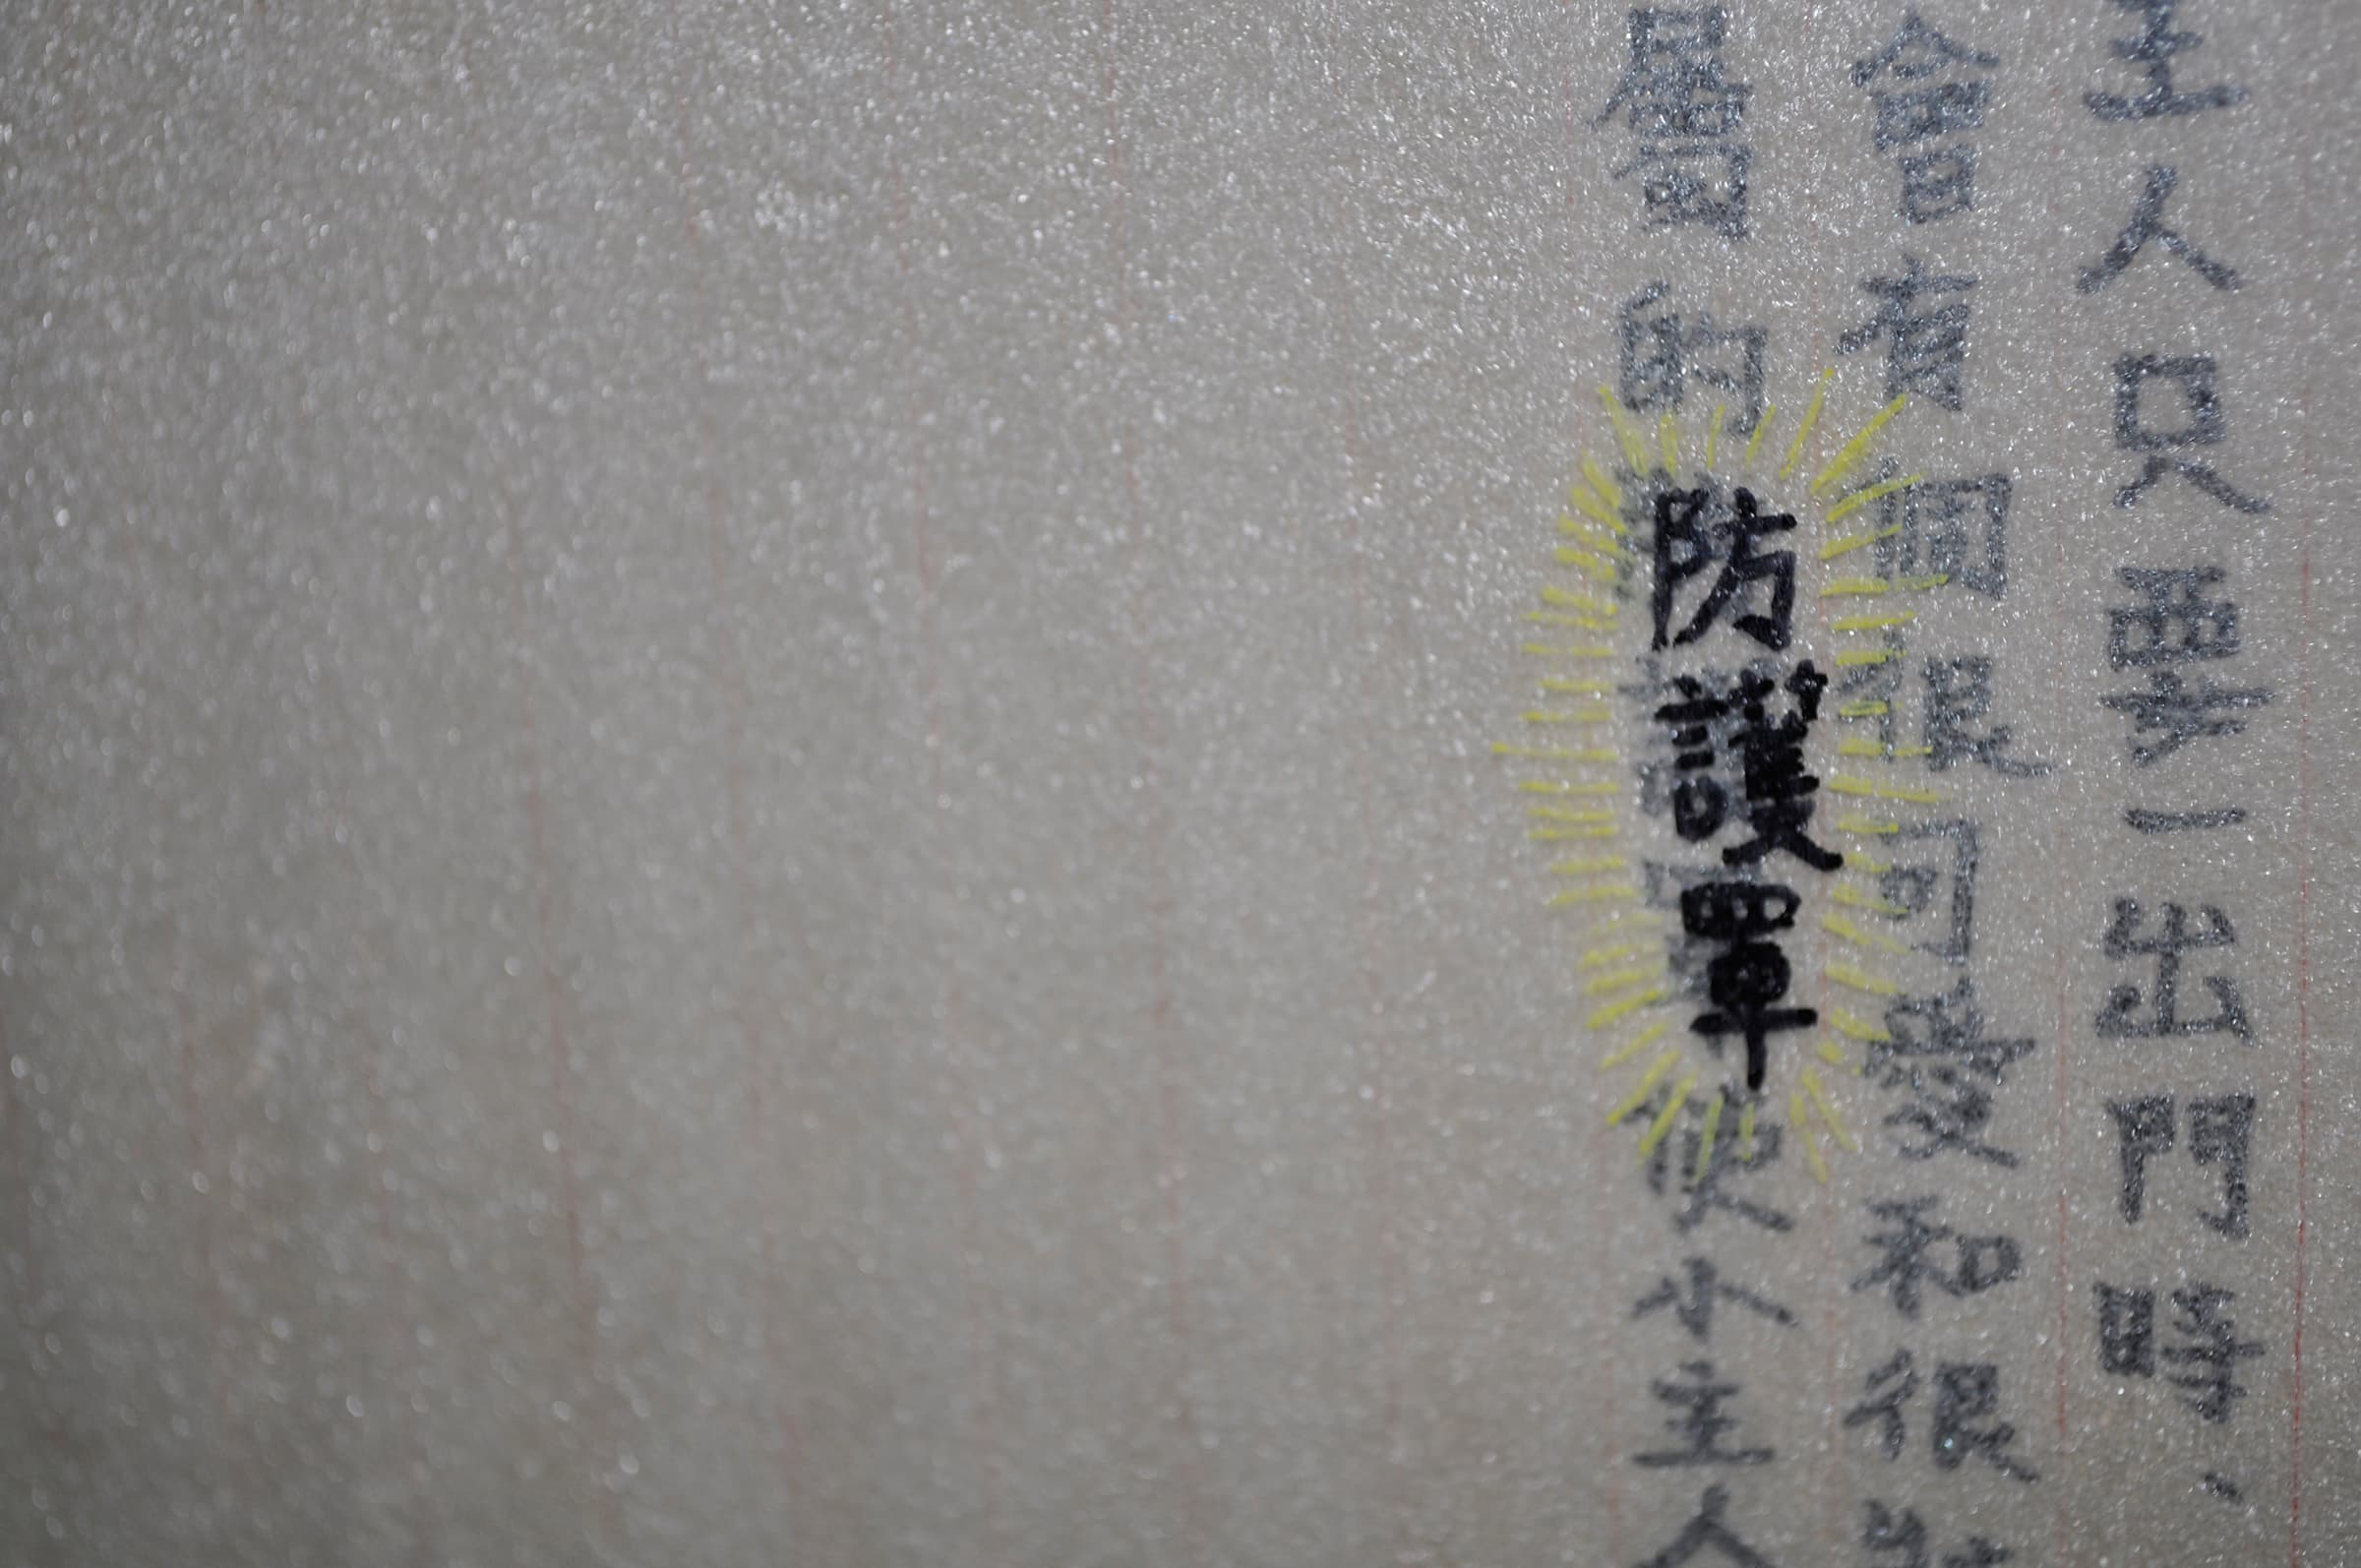 主人只要一出門時、
會有個很可愛和很
屬的防護罩使小主人